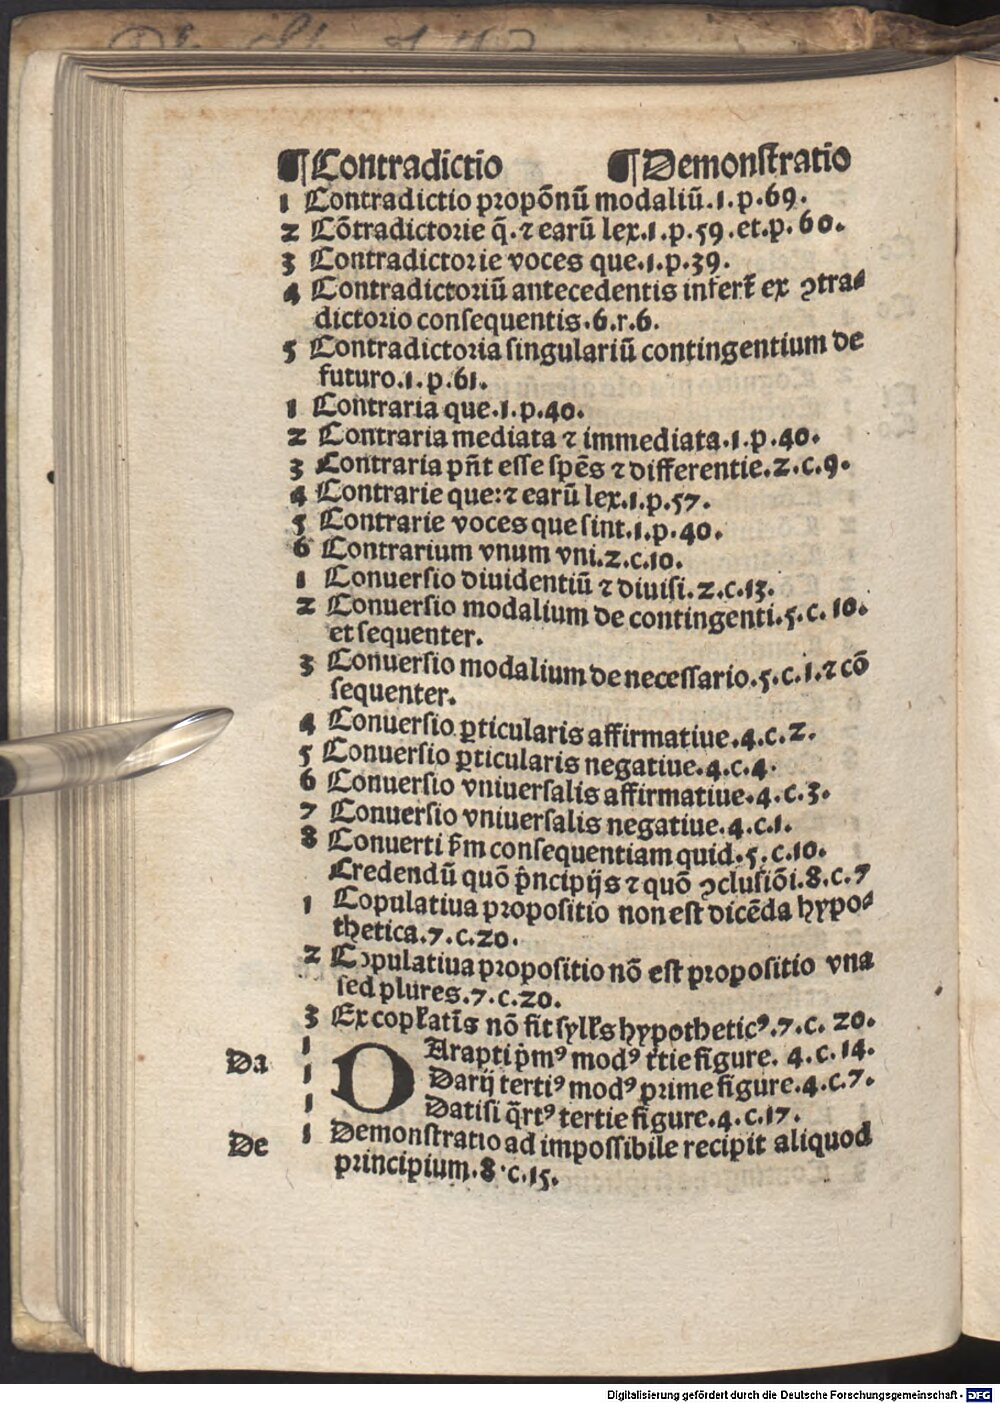 ¶Contradictio ¶Demonstratio
1 Contradictio propõnũ modaliũ.1.p.69.
2 Cõtradictorie q̃.⁊ earũ lex.1.p.59.et.p.60.
3 Contradictorie voces que.1.p.39.
4 Contradictoriũ antecedentis infert̃ ex ↄtra⸗
dictorio consequentis.6.r.6.
5 Contradictoria singulariũ contingentium de
futuro.1.p.61.
1 Contraria que.1.p.40.
2 Contraria mediata ⁊ immediata.1.p.40.
3 Contraria pñt esse spẽs ⁊ differentie.2.c.9.
4 Contrarie que:⁊ earũ lex.1.p.57.
5 Contrarie voces que sint.1.p.40.
6 Contrarium vnum vni.2.c.10.
1 Conuersio diuidentiũ ⁊ diuisi.2.c.13.
2 Conuersio modalium de contingenti.5.c.10.
et sequenter.
3 Conuersio modalium de necessario.5.c.1.⁊ cõ
sequenter.
4 Conuersio ꝑticularis affirmatiue.4.c.2.
5 Conuersio ꝑticularis negatiue.4.c.4.
6 Conuersio vniuersalis affirmatiue.4.c.3.
7 Conuersio vniuersalis negatiue.4.c.1.
8 Conuerti ẜm consequentiam quid.5.c.10.
Credendũ quõ p̃ncipijs ⁊ quõ ↄclusiõi.8.c.7
1 Copulatiua propositio non est dicẽda hypo⸗
thetica.7.c.20.
2 Copulatiua propositio nõ est propositio vna
sed plures.7.c.20.
3 Ex copl̃atĩs nõ fit syll̃s hypotheticꝰ.7.c.20.
Da 1 DArapti p̃mꝰ modꝰ t̃tie figure. 4.c.14.
1 Darij tertiꝰ modꝰ prime figure.4.c.7.
1 Datisi q̃rtꝰ tertie figure.4.c.17.
De 1 Demonstratio ad impossibile recipit aliquod
principium.8.c.15.
Digitalisierung gefördert durch die Deutsche Forschungsgemeinschaft - DFG